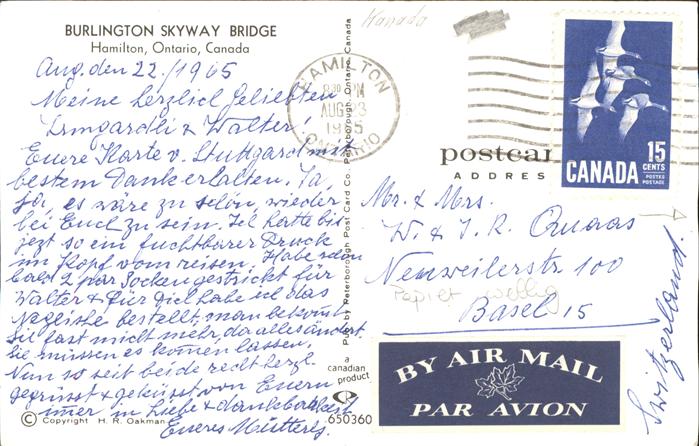 BURLINGTON SKYWAY BRIDGE
Hamilton, Ontario, Canada
Aug. den 22./1965
Meine herzlich geliebten
Irmgardli & Walter!
Euere Karte v. Stuttgard mit
bestem Dank erhalten. Ja,
ja, es wäre zu schön, wieder
bei Euch zu sein. Ich hatte bis
jezt so ein fuchtbarer Druck
im Kopf vom reisen. Habe schon
bald 2 par Socken gestrickt für
Walter & für Dich habe ich das
bestellt, man bekomt
Sie fast nicht mehr, da alles ändert.
Sie müssen es komen lassen.
Nun so seit beide recht herzl.
gegrüsst & geküsst von Euern
imer in Liebe & dankbarkeit
Eueres Mütterli
© Copyright H. R. Oakman
Pub. by Peterborough Post Card Co. Peterborough, Ontario, Canada
a
canadian
product
650360
Kanada
HAMILTON
PM
AUG 23
1965
ONTARIO
postcar
ADDRES
15
CENTS
POSTES
POSTAGE
CANADA
Mr. & Mrs.
W. & I. R. Quaas
Neuweilerstr 100
Papier wellig
Basel 15
Switzerland.
BY AIR MAIL
PAR AVION